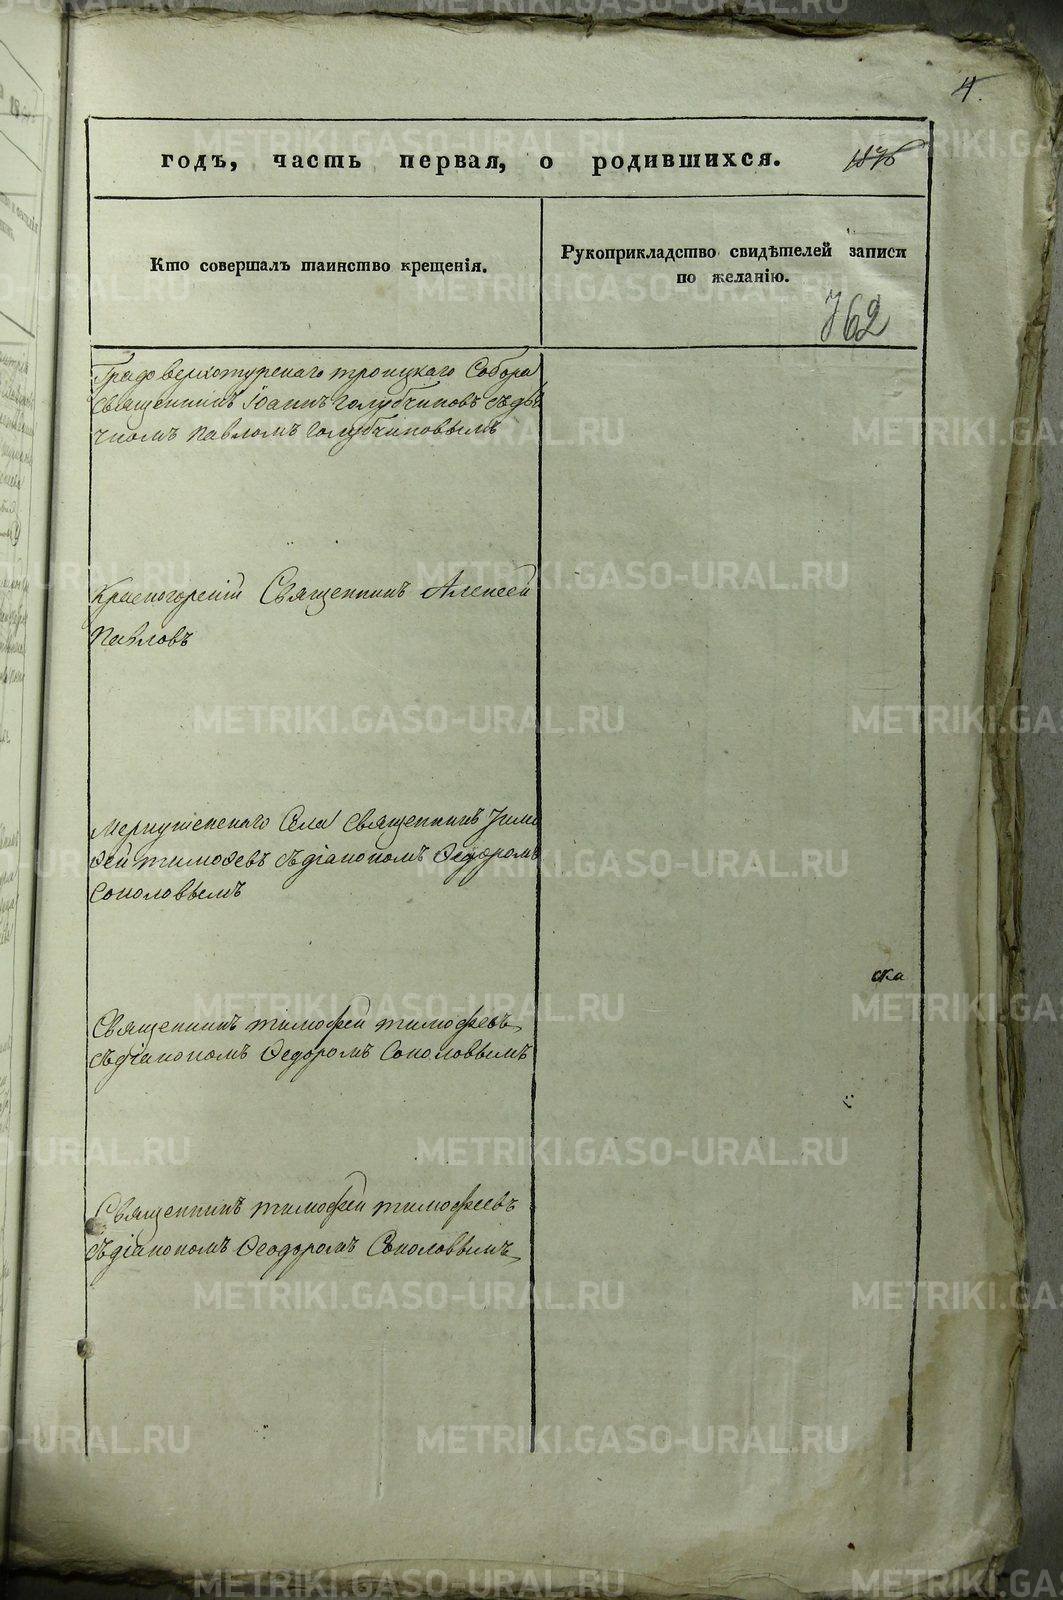 4.
годъ, часть первая, о родившихся.
Кто совершалъ таинство крещенія.
Рукоприкладство свидѣтелей записи
по желанію.
762
Градоверхотурскаго троицкаго Собора
Священникъ Іоаннъ Голубчиковъ съ дья
чкомъ Павломъ Голубчиковымъ
Красногорскій Священникъ Алексей
Павловъ
Меркушенскаго Села Священникъ Тимо
ѳей тимоѳевъ съ діакономъ Ѳедоромъ
Соколовымъ
ска
Священникъ тимофей тимофеевъ
съ діакономъ Ѳедоромъ Соколовымъ
Священникъ тимофей тимофеевъ
съ діакономъ Ѳеодоромъ Соколовымъ
METRIKI.GASO-URAL.RU